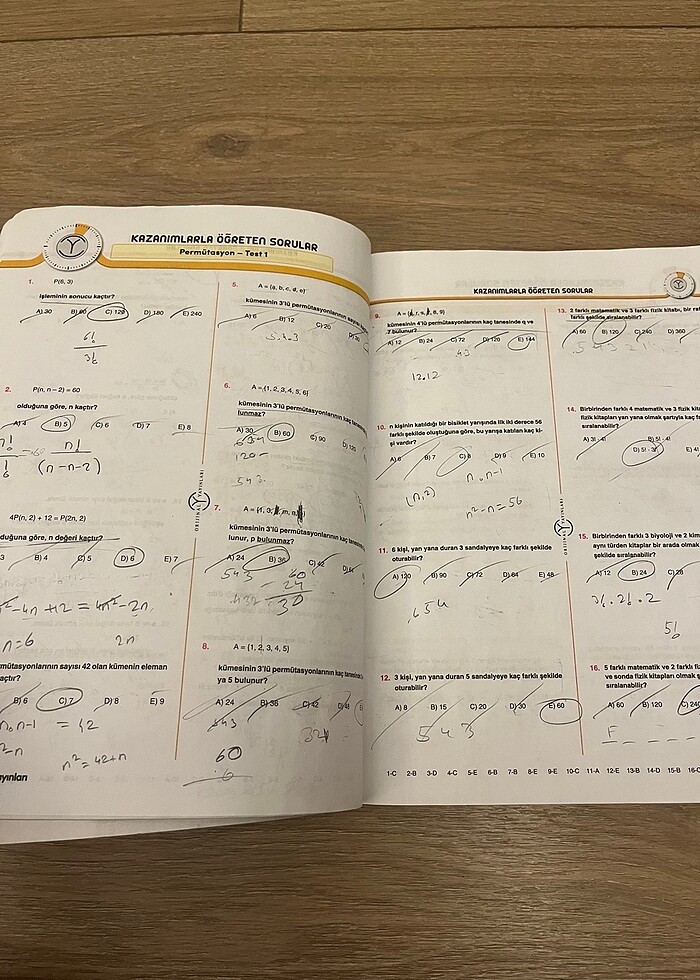 KAZANIMLARLA ÖĞRETEN SORULAR
Permütasyon – Test 1
1. P(6, 3)
işleminin sonucu kaçtır?
A) 30 B) 60 C) 120 D) 180 E) 240
6!
3!
2. P(n, n – 2) = 60
olduğuna göre, n kaçtır?
A) 4 B) 5 C) 6 D) 7 E) 8
n!
(n-n-2)
4P(n, 2) + 12 = P(2n, 2)
duğuna göre, n değeri kaçtır?
3 B) 4 C) 5 D) 6 E) 7
-4n +12 = 4n²-2n
n=6 2n
mütasyonlarının sayısı 42 olan kümenin eleman
açtır?
B) 6 C) 7 D) 8 E) 9
n.n-1 = 42
n²-n
n²=42+n
ayınları
5. A = {a, b, c, d, e}
kümesinin 3'lü permütasyonlarının sayısı
A) 6 B) 12 C) 20 D) 30
5.4.3
6. A = {1, 2, 3, 4, 5, 6}
kümesinin 3'lü permütasyonlarının kaç
lunmaz?
A) 30 B) 60 C) 90 D) 120
654
120-
543
ORİJİNAL YAYINLARI
7.
kümesinin 3'lü permütasyonlarının kaç
lunur, p bulunmaz?
A) 24 B) 36 C) 42 D) 54
543 60
24
432
8. A = {1, 2, 3, 4, 5}
kümesinin 3'lü permütasyonlarının kaç tanesinde
ya 5 bulunur?
A) 24 B) 36 C) 42 D) 48
543
321
60
6
KAZANIMLARLA ÖĞRETEN SORULAR
9.
kümesinin 4'lü permütasyonlarının kaç tanesinde q ve
7 bulunur?
A) 12 B) 24 C) 72 D) 120 E) 144
43
12.12
10. n kişinin katıldığı bir bisiklet yarışında ilk iki derece 56
farklı şekilde oluştuğuna göre, bu yarışa katılan kaç ki-
şi vardır?
A) 6 B) 7 C) 8 D) 9 E) 10
(n,2) n.n-1
n²-n=56
11. 6 kişi, yan yana duran 3 sandalyeye kaç farklı şekilde
oturabilir?
A) 120 B) 90 C) 72 D) 64 E) 48
654
12. 3 kişi, yan yana duran 5 sandalyeye kaç farklı şekilde
oturabilir?
A) 8 B) 15 C) 20 D) 30 E) 60
5 4 3
13. 2 farklı matematik ve 3 farklı fizik kitabı, bir raf
farklı şekilde sıralanabilir?
A) 60 B) 120 C) 240 D) 360
14. Birbirinden farklı 4 matematik ve 3 fizik kit
fizik kitapları yan yana olmak şartıyla kaç fa
sıralanabilir?
A) 3! · 4! B) 5! · 4!
D) 5! · 3! E) 4!
ORİJİNAL YAYINLARI
15. Birbirinden farklı 3 biyoloji ve 2 kim
aynı türden kitaplar bir arada olmak
şekilde sıralanabilir?
A) 12 B) 24 C) 28
3!.2!.2
5!
16. 5 farklı matematik ve 2 farklı fiz
ve sonda fizik kitapları olmak ş
sıralanabilir?
A) 60 B) 120 C) 240
F
1-C 2-B 3-D 4-C 5-E 6-B 7-B 8-E 9-E 10-C 11-A 12-E 13-B 14-D 15-B 16-C